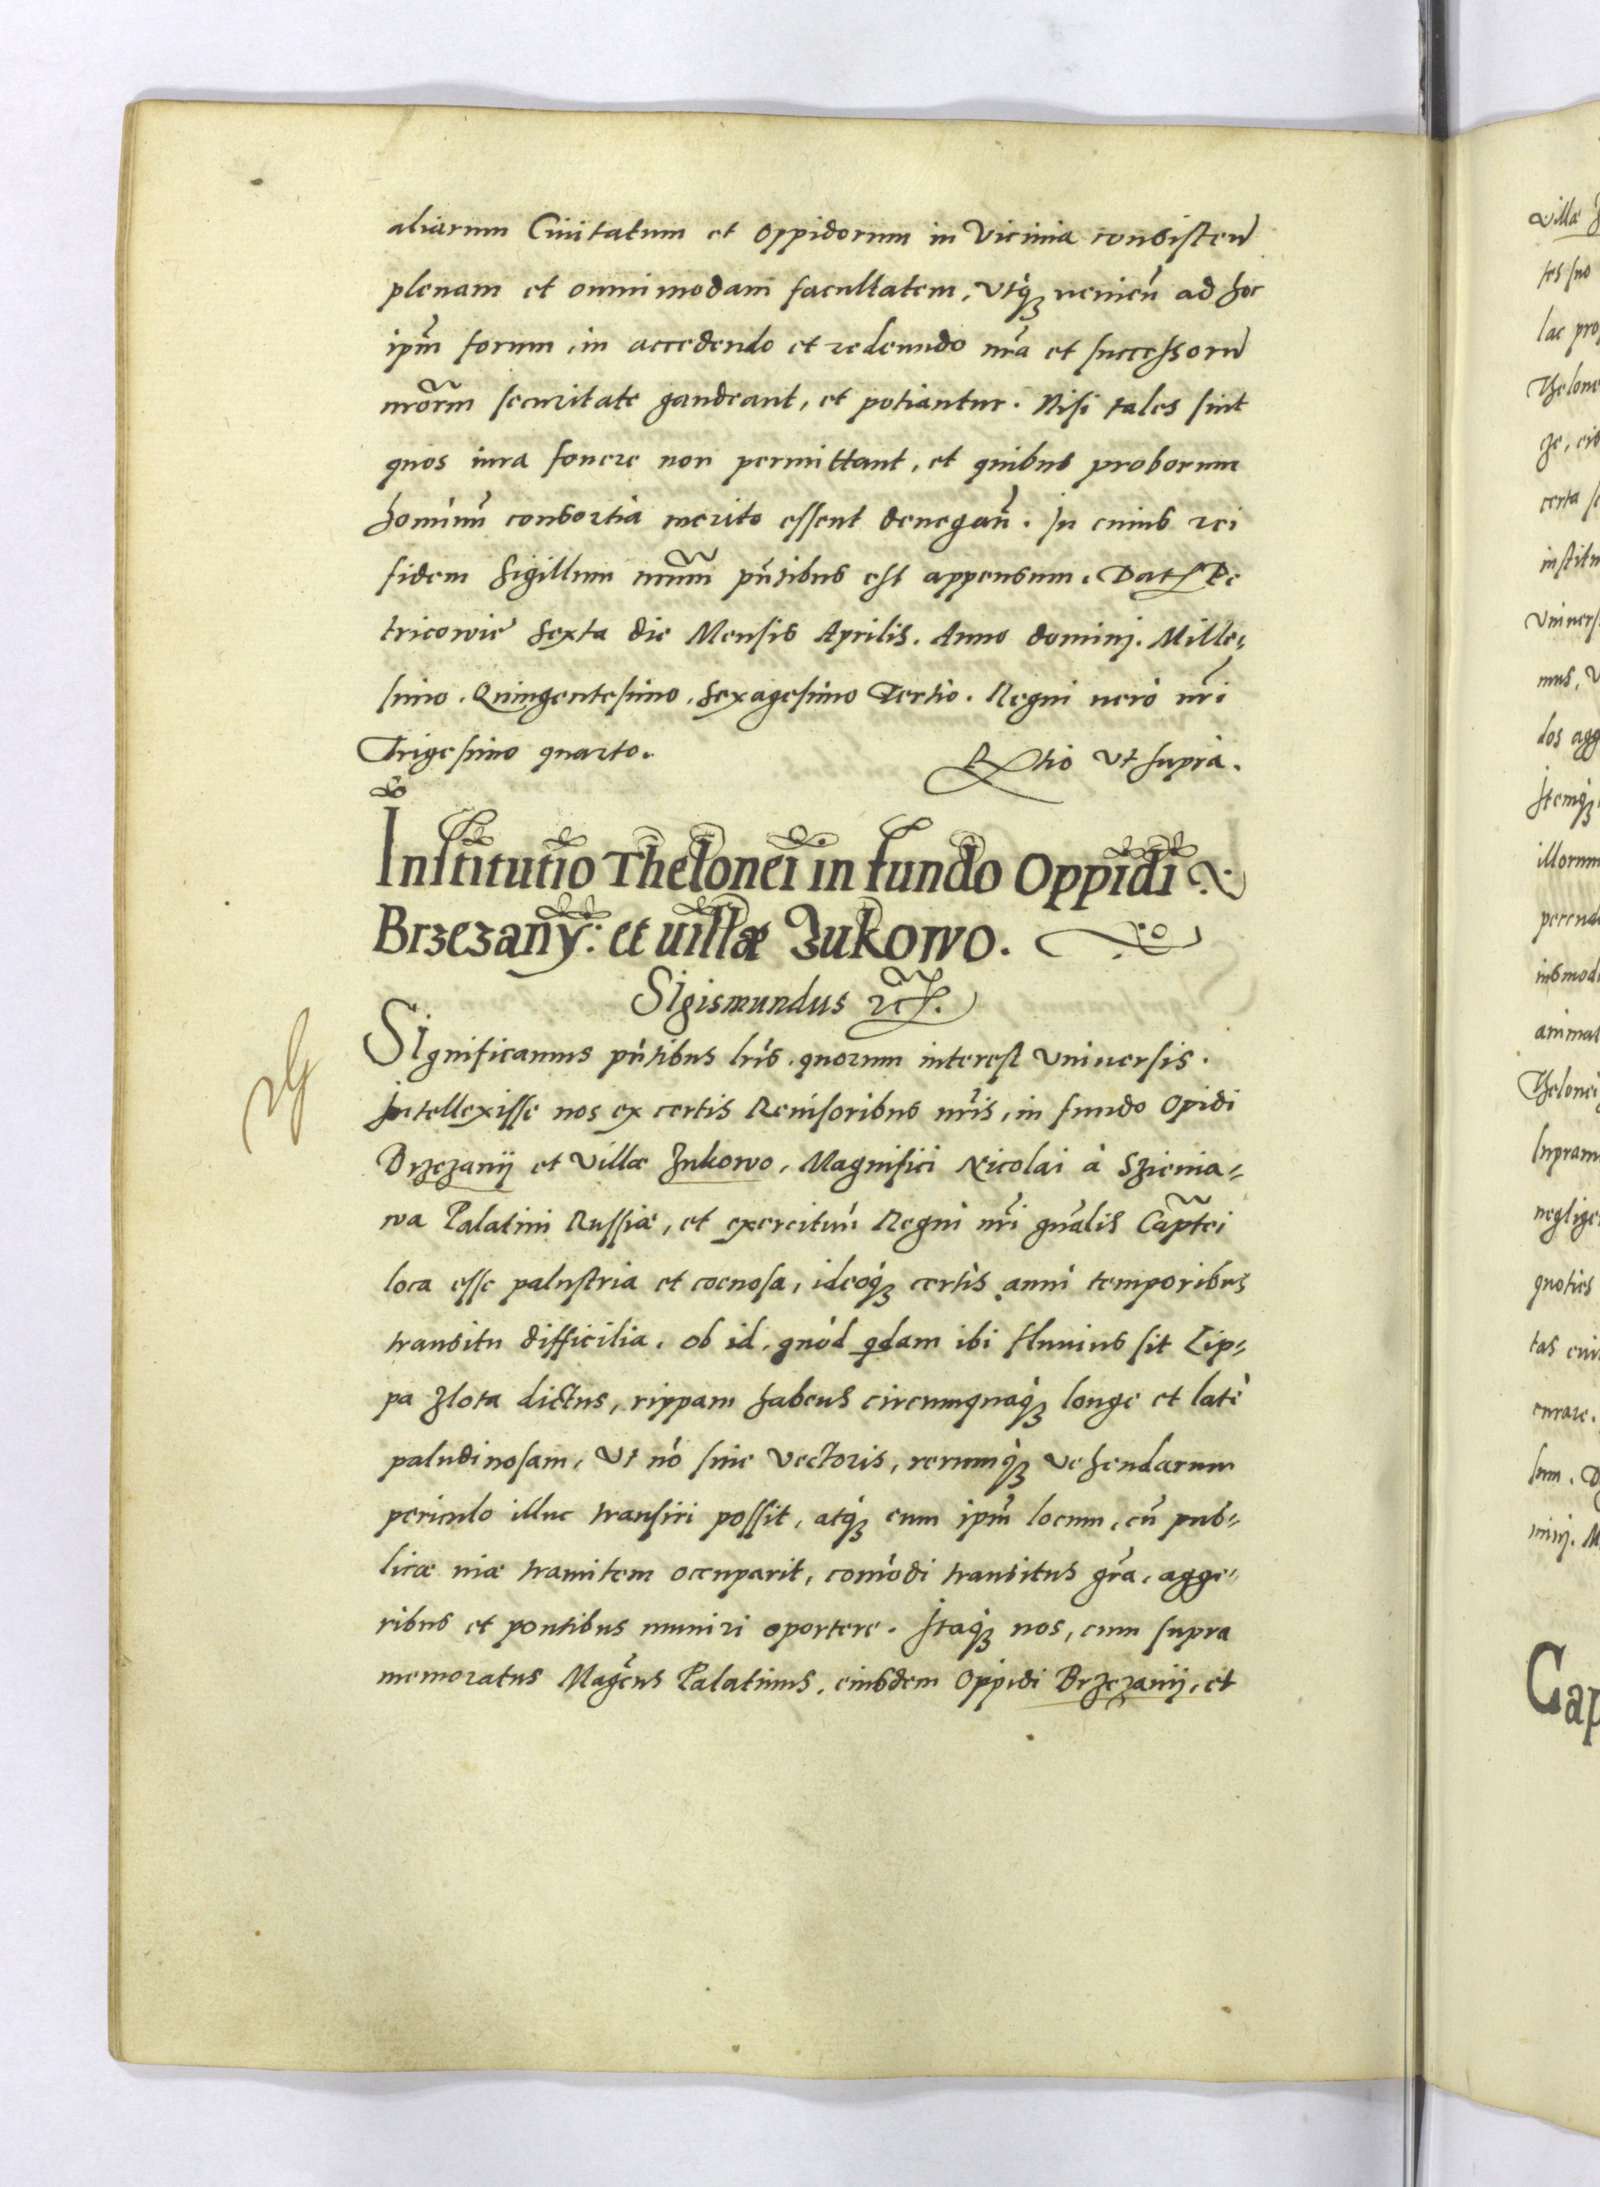 aliarum Ciuitatum et oppidorum in vicinia consisteñ
plenam et omnimodam facultatem, vtq̃ȝ venieñ ad hoc
ipm̃ forum, in accedendo et redeundo nr̃a et successorũ
nr̃orũm securitate gaudeant, et potiantur. Nisi tales sint
quos iura fouere non permittant, et quibus proborum
hominũ consortia merito essent denegañ. In cuius rei
fidem Sigillum nr̃um pñtibus est appensum. Dat Pe
tricowie Sexta die Mensis Aprilis. Anno dominj. Mille-
simo. Quingentesimo. Sexagesimo Tertio. Regni vero nr̃i
Trigesimo quarto. Rtio vt supra.
Institutio Thelonei in fundo Oppidi
Brzezany: et uillæ Zukowo.
Sigismundus etc.
Significamus pñtibus lr̃is. quorum interest vniuersis.
Intellexisse nos ex certis Reuisoribus nr̃is, in fundo Opidi
Brzezanij et villæ Zukowo, Magnifici Nicolai à Szienia-
wa Palatini Russiæ, et exercituũ Regni nr̃i gñalis Capitei
loca esse palustria et coenosa, ideoq̃ȝ certis anni temporibus
transitu difficilia. Ob id. quòd qdam ibi fluuius sit Lip-
pa Zlota dictus, rippam habens circumquaq̃ȝ longe et latè
paludinosam, vt nõ sine vectoris, rerumq̃ȝ vehendarum
periculo illuc transiri possit, atq̃ȝ eum ipm̃ locum, cũ pub-
licæ uiæ tramitem occuparit, comõdi transitus gr̃a, agge-
ribus et pontibus muniri oportere. Itaq̃ȝ nos, cum supra
memoratus Mag̃cus Palatinus, eiusdem Oppidi Brzezanij, et